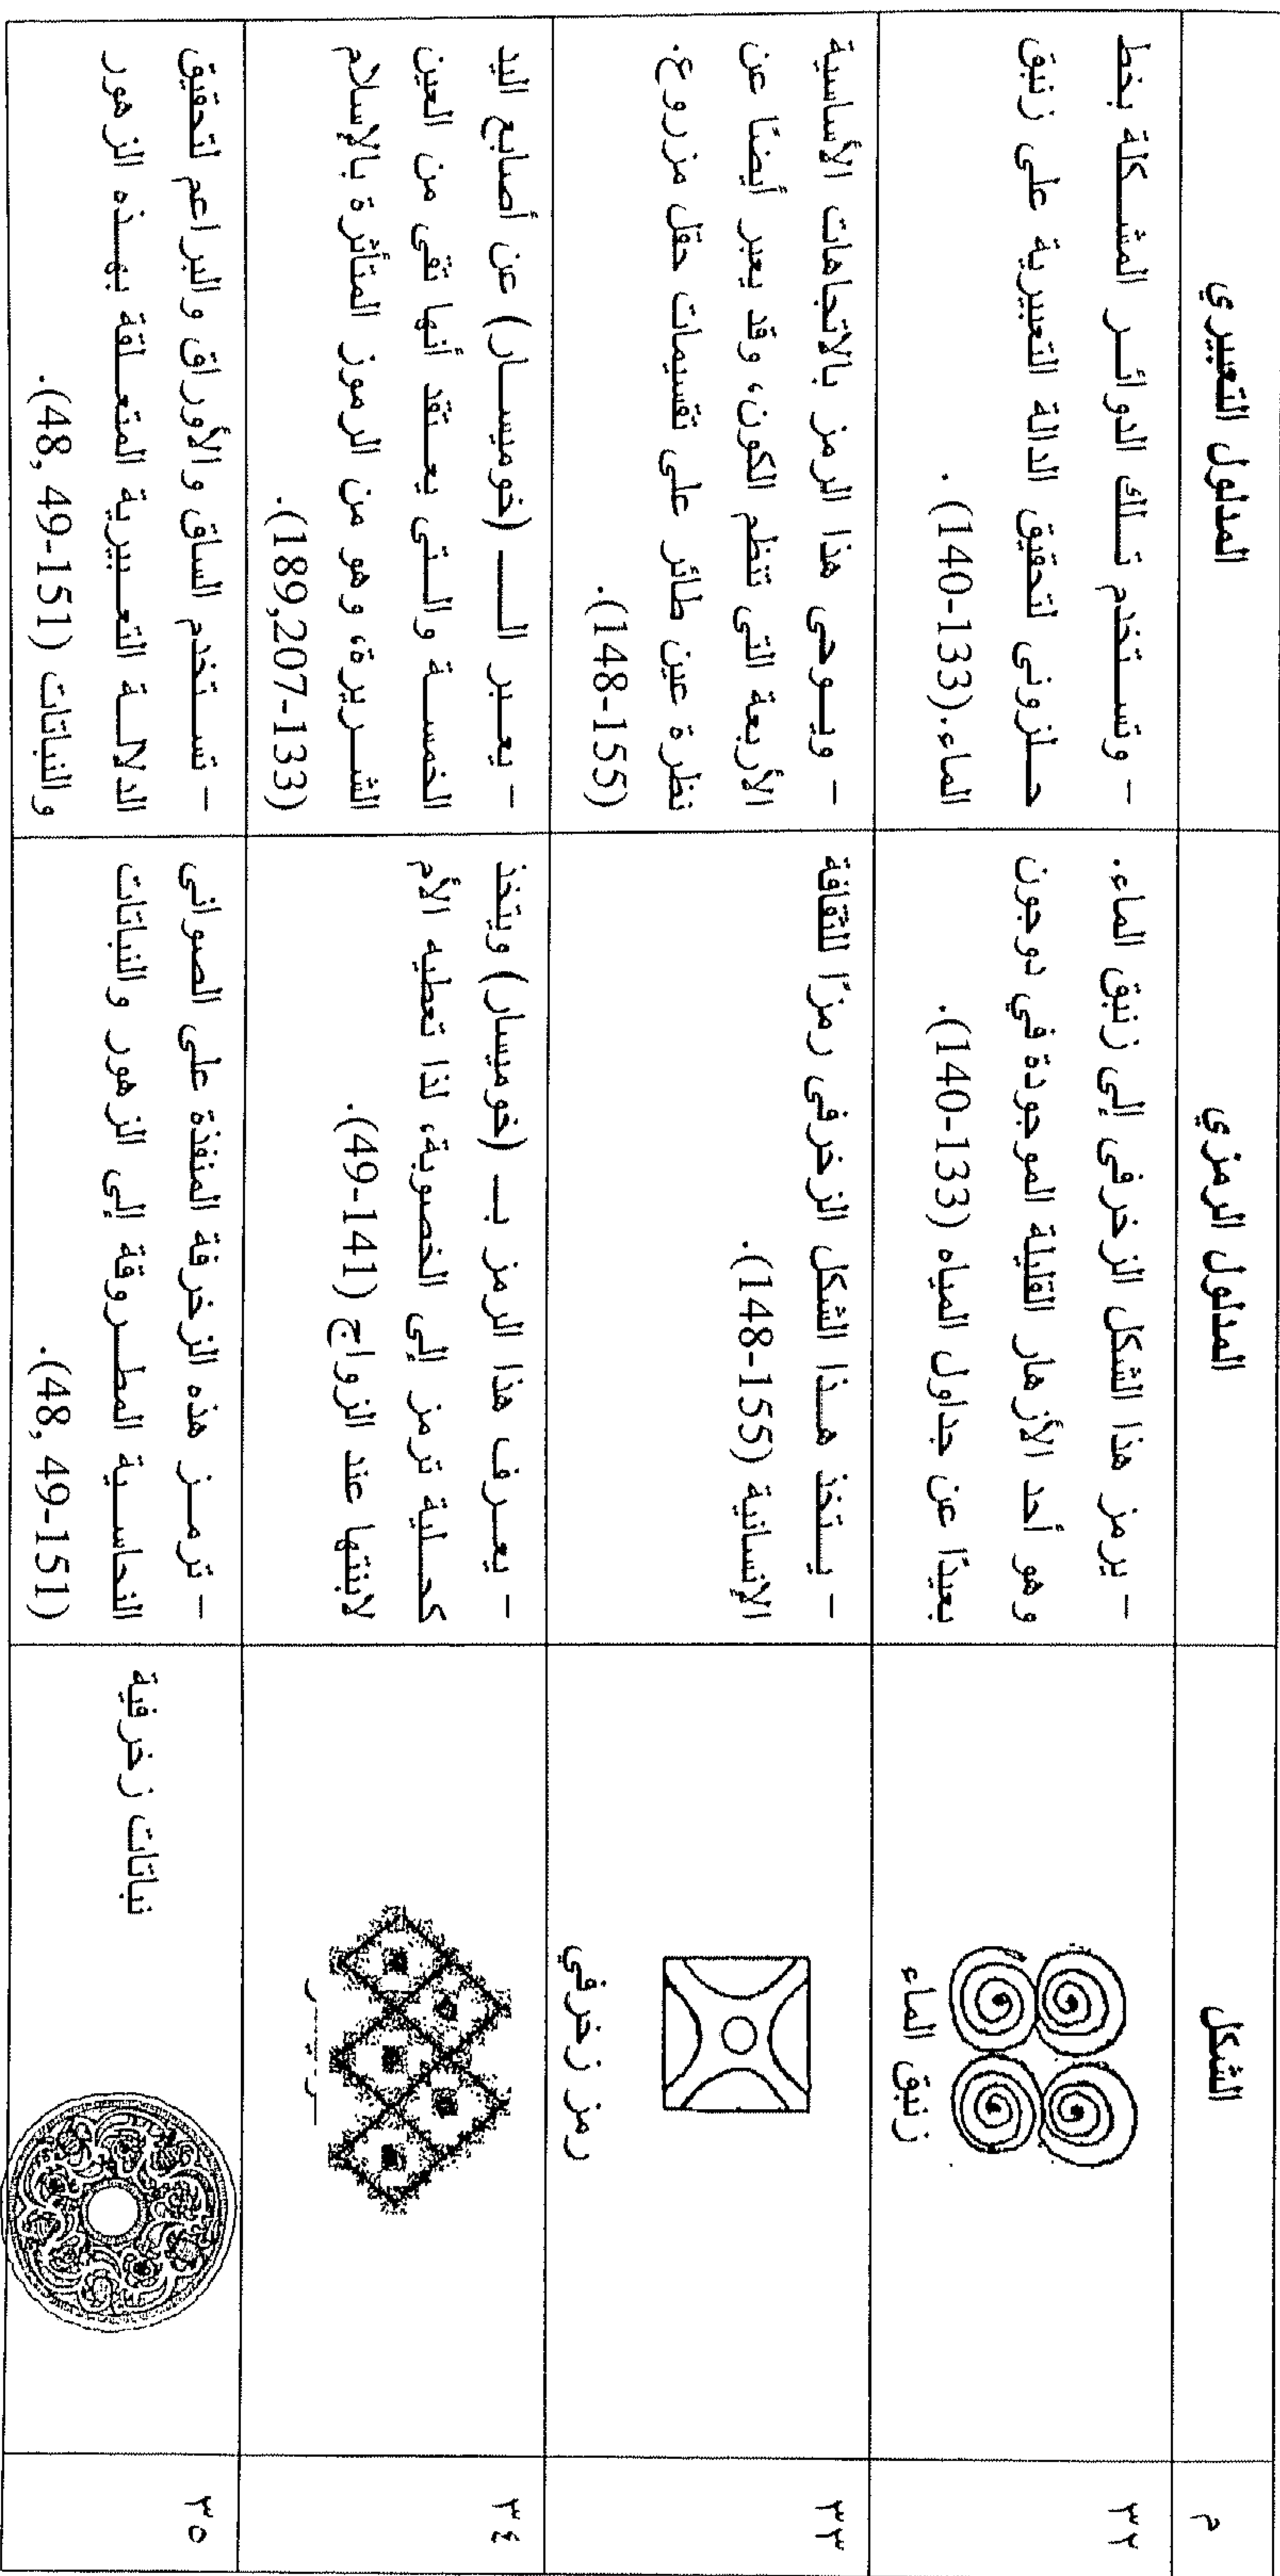 م
الشكل
المدلول الرمزي
المدلول التعبيري
٣٢
زنبق الماء
– يرمز هذا الشكل الزخرفى إلى زنبق الماء.
وهو أحد الأزهار القليلة الموجودة في دوجون
بعيدًا عن جداول المياه (133-140).
– وتستخدم تلك الدوائر المشكلة بخط
حلزونى لتحقيق الدالة التعبيرية على زنبق
الماء.(133-140) .
٣٣
رمز زخرفي
– يتخذ هذا الشكل الزخرفى رمزًا للثقافة
الإنسانية (155-148).
– ويوحى هذا الرمز بالاتجاهات الأساسية
الأربعة التى تنظم الكون، وقد يعبر أيضًا عن
نظرة عين طائر على تقسيمات حقل مزروع.
(155-148).
٣٤
– يعرف هذا الرمز بـ (خوميسار) ويتخذ
كحلية ترمز إلى الخصوبة، لذا تعطيه الأم
لابنتها عند الزواج (141-49).
– يعبر الـ (خوميسار) عن أصابع اليد
الخمسة والتى يعتقد أنها تقى من العين
الشريرة، وهو من الرموز المتأثرة بالإسلام
(133-189,207).
٣٥
نباتات زخرفية
– ترمز هذه الزخرفة المنفذة على الصوانى
النحاسية المطروقة إلى الزهور والنباتات
(151-49 ,48).
– تستخدم الساق والأوراق والبراعم لتحقيق
الدلالة التعبيرية المتعلقة بهذه الزهور
والنباتات (151-49 ,48).